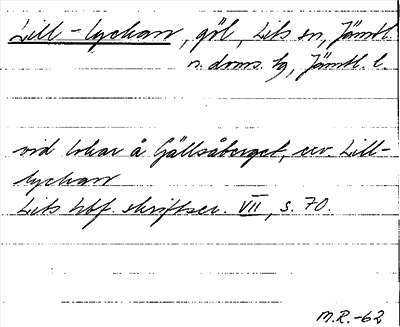 Lill-lyckan, göl, Lits sn, Jämtl.
n. doms. tg, Jämtl. l.
vid lokar å Gällsåberget, err. Lill-
lyckan
Lits hbf. skriftser. VII, s. 70.
M.R.-62